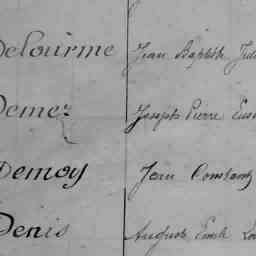 Delourme Jean Baptiste
Demez Joseph Pierre
Demoy Jean Constant
Denis Auguste Emile